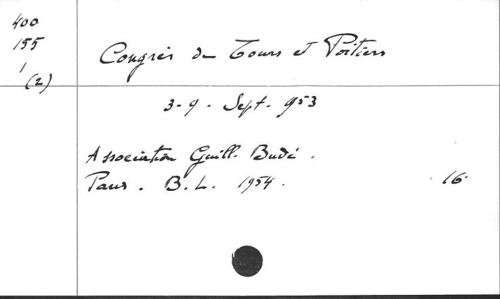 400
155
1
(2)
Congrès de Tours et Poitiers
3-9. Sept. 953
Association Guill. Budé.
Paris. B.L. 1954. 16